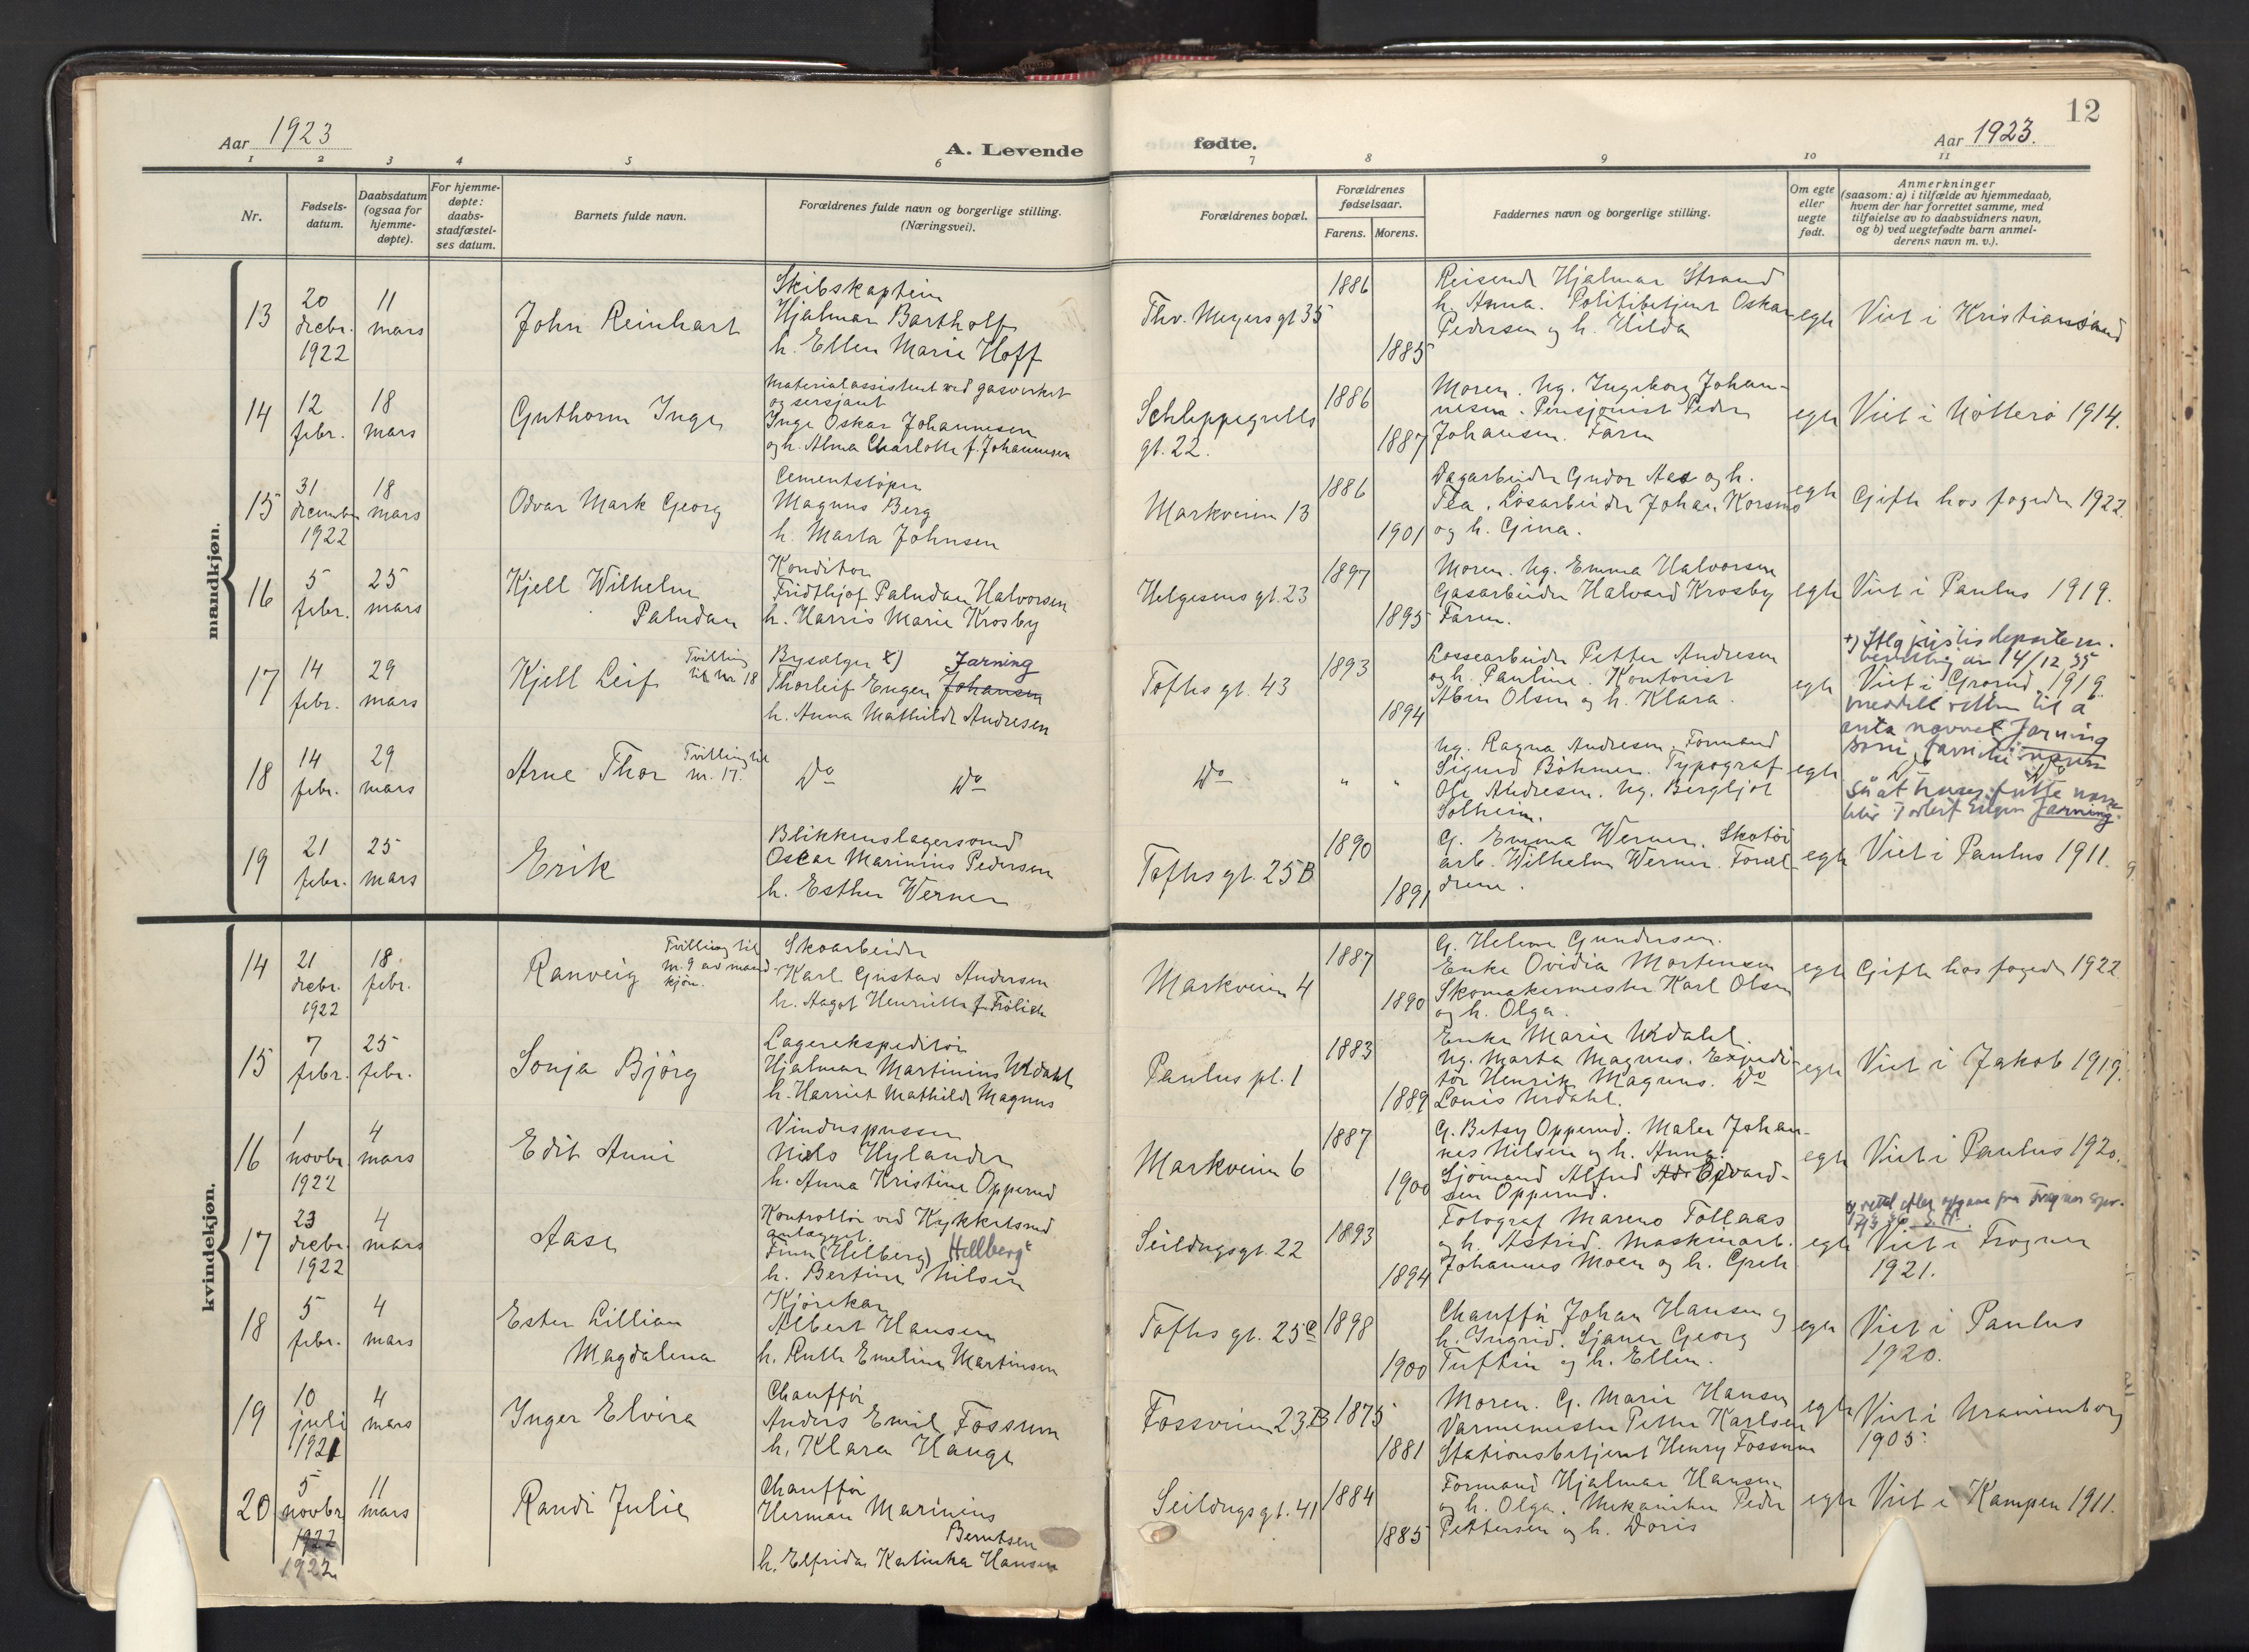 12
Aar 1923
A. Levende
fødte.
Aar 1923.
1 2 3 4 5 6 7 8 9 10 11
Nr.
Fødsels-
datum.
Daabsdatum
(ogsaa for
hjemme-
døpte).
For hjemme-
døpte:
daabs-
stadfæstel-
ses datum.
Barnets fulde navn.
Forældrenes fulde navn og borgerlige stilling.
(Næringsvei).
Forældrenes bopæl.
Forældrenes
fødselsaar.
Farens. Morens.
Faddernes navn og borgerlige stilling.
Om egte
eller
uegte
født.
Anmerkninger
(saasom: a) i tilfælde av hjemmedaab,
hvem der har forrettet samme, med
tilføielse av to daabsvidners navn,
og b) ved uegtefødte barn anmel-
derens navn m. v.).
mandkjøn.
13
20
decbr.
1922
11
mars
John Reinhart
Skibskaptein
Hjalmar Bartholf
h. Ellen Marie Hoff
Thv. Meyers gt 35
1886
1885
Reisende Hjalmar Strand
h. Anna. Politibetjent Oskar
Pedersen og h. Hilda
egte
Viet i Kristiansand
14
12
febr.
18
mars
Guthorm Inge
Materialassistent ved gasverket
og sersjant
Inge Oskar Johannesen
og h. Alma Charlotte f. Johannesen
Schleppegrells
gt. 22.
1886
1887
Moren. Ug. Ingeborg Johan-
nesen. Pensjonist Peder
Johansen. Faren
egte
Viet i Nötterö 1914.
15
31
december
1922
18
mars
Odvar Mark Georg
Cementstöper
Magnus Berg
h. Marta Johnsen
Markveien 13
1886
1901
Dagarbeider Gudor Aas og h.
Tea. Lösarbeider Johan Korsmo
og h. Gina.
egte
Gifte hos fogeden 1922.
16
5
febr.
25
mars
Kjell Wilhelm
Paludan
Konditor
Fridthjof Paludan Halvorsen
h. Harris Marie Krosby
Helgesens gt. 23
1897
1895
Moren. Ug. Emma Halvorsen
Gasarbeider Halvard Krosby
Faren.
egte
Viet i Paulus 1919.
17
14
febr.
29
mars
Kjell Leif
Tvilling
til nr 18
Bysælger x) Jarning
Thorleif Eugen Johansen
h. Anna Mathilde Andresen
Toftes gt. 43
1893
1894
Lossearbeider Petter Andresen
og h. Pauline. Kontorist
Olsen og h. Klara.
egte
+) Ifлg justisdepartem.
bevilling av 14/12 35
Viet i Grorud 1919.
meddelt retten til å
anta navnet Jarning
som familienavn
18
14
febr.
29
mars
Arne Thor
Tvilling til
nr. 17.
Do Do
Do
" "
Ug. Ragna Andresen, Formand
Sigurd Böhmer. Typograf
Ole Andresen. Ug. Bergljot
Solheim.
egte
Do Do
så at hans fulle navn
blir Torleif Eugen Jarning.
19
21
febr.
25
mars
Erik
Blikkenslagersvend
Oscar Marinius Pedersen
h. Esther Werner
Toftes gt. 25B
1890
1891
G. Emma Werner. Skotöi
arb. Wilhelm Werner. Foræl-
drene.
egte
Viet i Paulus 1911.
kvindekjøn.
14
21
decbr.
1922
18
febr.
Ranveig
Tvilling til
nr. 9 av mand-
kjön.
Skoarbeider
Karl Gustav Andersen
h. Aagot Henriette f. Frölich
Markveien 4
1887
1890
G. Helene Gundersen.
Enke Ovidia Mortensen
Skomakermester Karl Olsen
og h. Olga.
egte
Gifte hos fogeden 1922
15
7
febr.
25
febr.
Sonja Björg
Lagerekspeditör
Hjalmar Martinius Urdahl
h. Harriet Mathilde Magnus
Paulus pl. 1
1883
1889
Enke Marie Urdahl.
Ug. Marta Magnus. Expedi-
tör Henrik Magnus. Do
Louis Urdahl.
egte
Viet i Jakob 1919.
16
1
novbr.
1922
4
mars
Edit Anni
Vinduspusser
Niels Hylander
h. Anna Kristine Opperud
Markveien 6
1887
1900
G. Betsy Opperud. Maler Johan-
nes Nilsen og h. Anna.
Sjömand Alfred Edvard-
sen Opperud.
egte
Viet i Paulus 1920.
17
23
decbr.
1922
4
mars
Aase
Kontrollör ved Kykkelsrud
anlægget.
Finn (Hilberg) Hellberg x
h. Bertine Nilsen
Seildugsgt. 22
1893
1894
Fotograf Mareno Tollaas
og h. Astrid. Maskinarb.
Johannes Moen og h. Grete
egte
x) rettet efter opgave fra Frogner
Viet i Frogner
1921.
18
5
febr.
4
mars
Ester Lillian
Magdalena
Kjörekar
Albert Hansen
h. Ruth Emeline Martinsen
Toftes gt. 25c
1898
1900
Chaufför Johan Hansen og
h. Ingrid. Sjauer Georg
Tuftin og h. Ellen.
egte
Viet i Paulus
1920.
19
10
juli
1921
4
mars
Inger Elvira
Chaufför
Anders Emil Fossum
h. Klara Hauge
Fossveien 23B
1875
1881
Moren. G. Marie Hansen
Varmemester Petter Karlsen
Stationsbetjent Henry Fossum
egte
Viet i Uranienborg
1905.
20
5
novbr
1922
1922
11
mars
Randi Julie
Chaufför
Herman Marinius
Berntsen
h. Elfrida Katinka Hansen
Seildugsgt. 41
1884
1885
Formand Hjalmar Hansen
og h. Olga. Mekaniker Peder
Pettersen og h. Doris
egte
Viet i Kampen 1911.